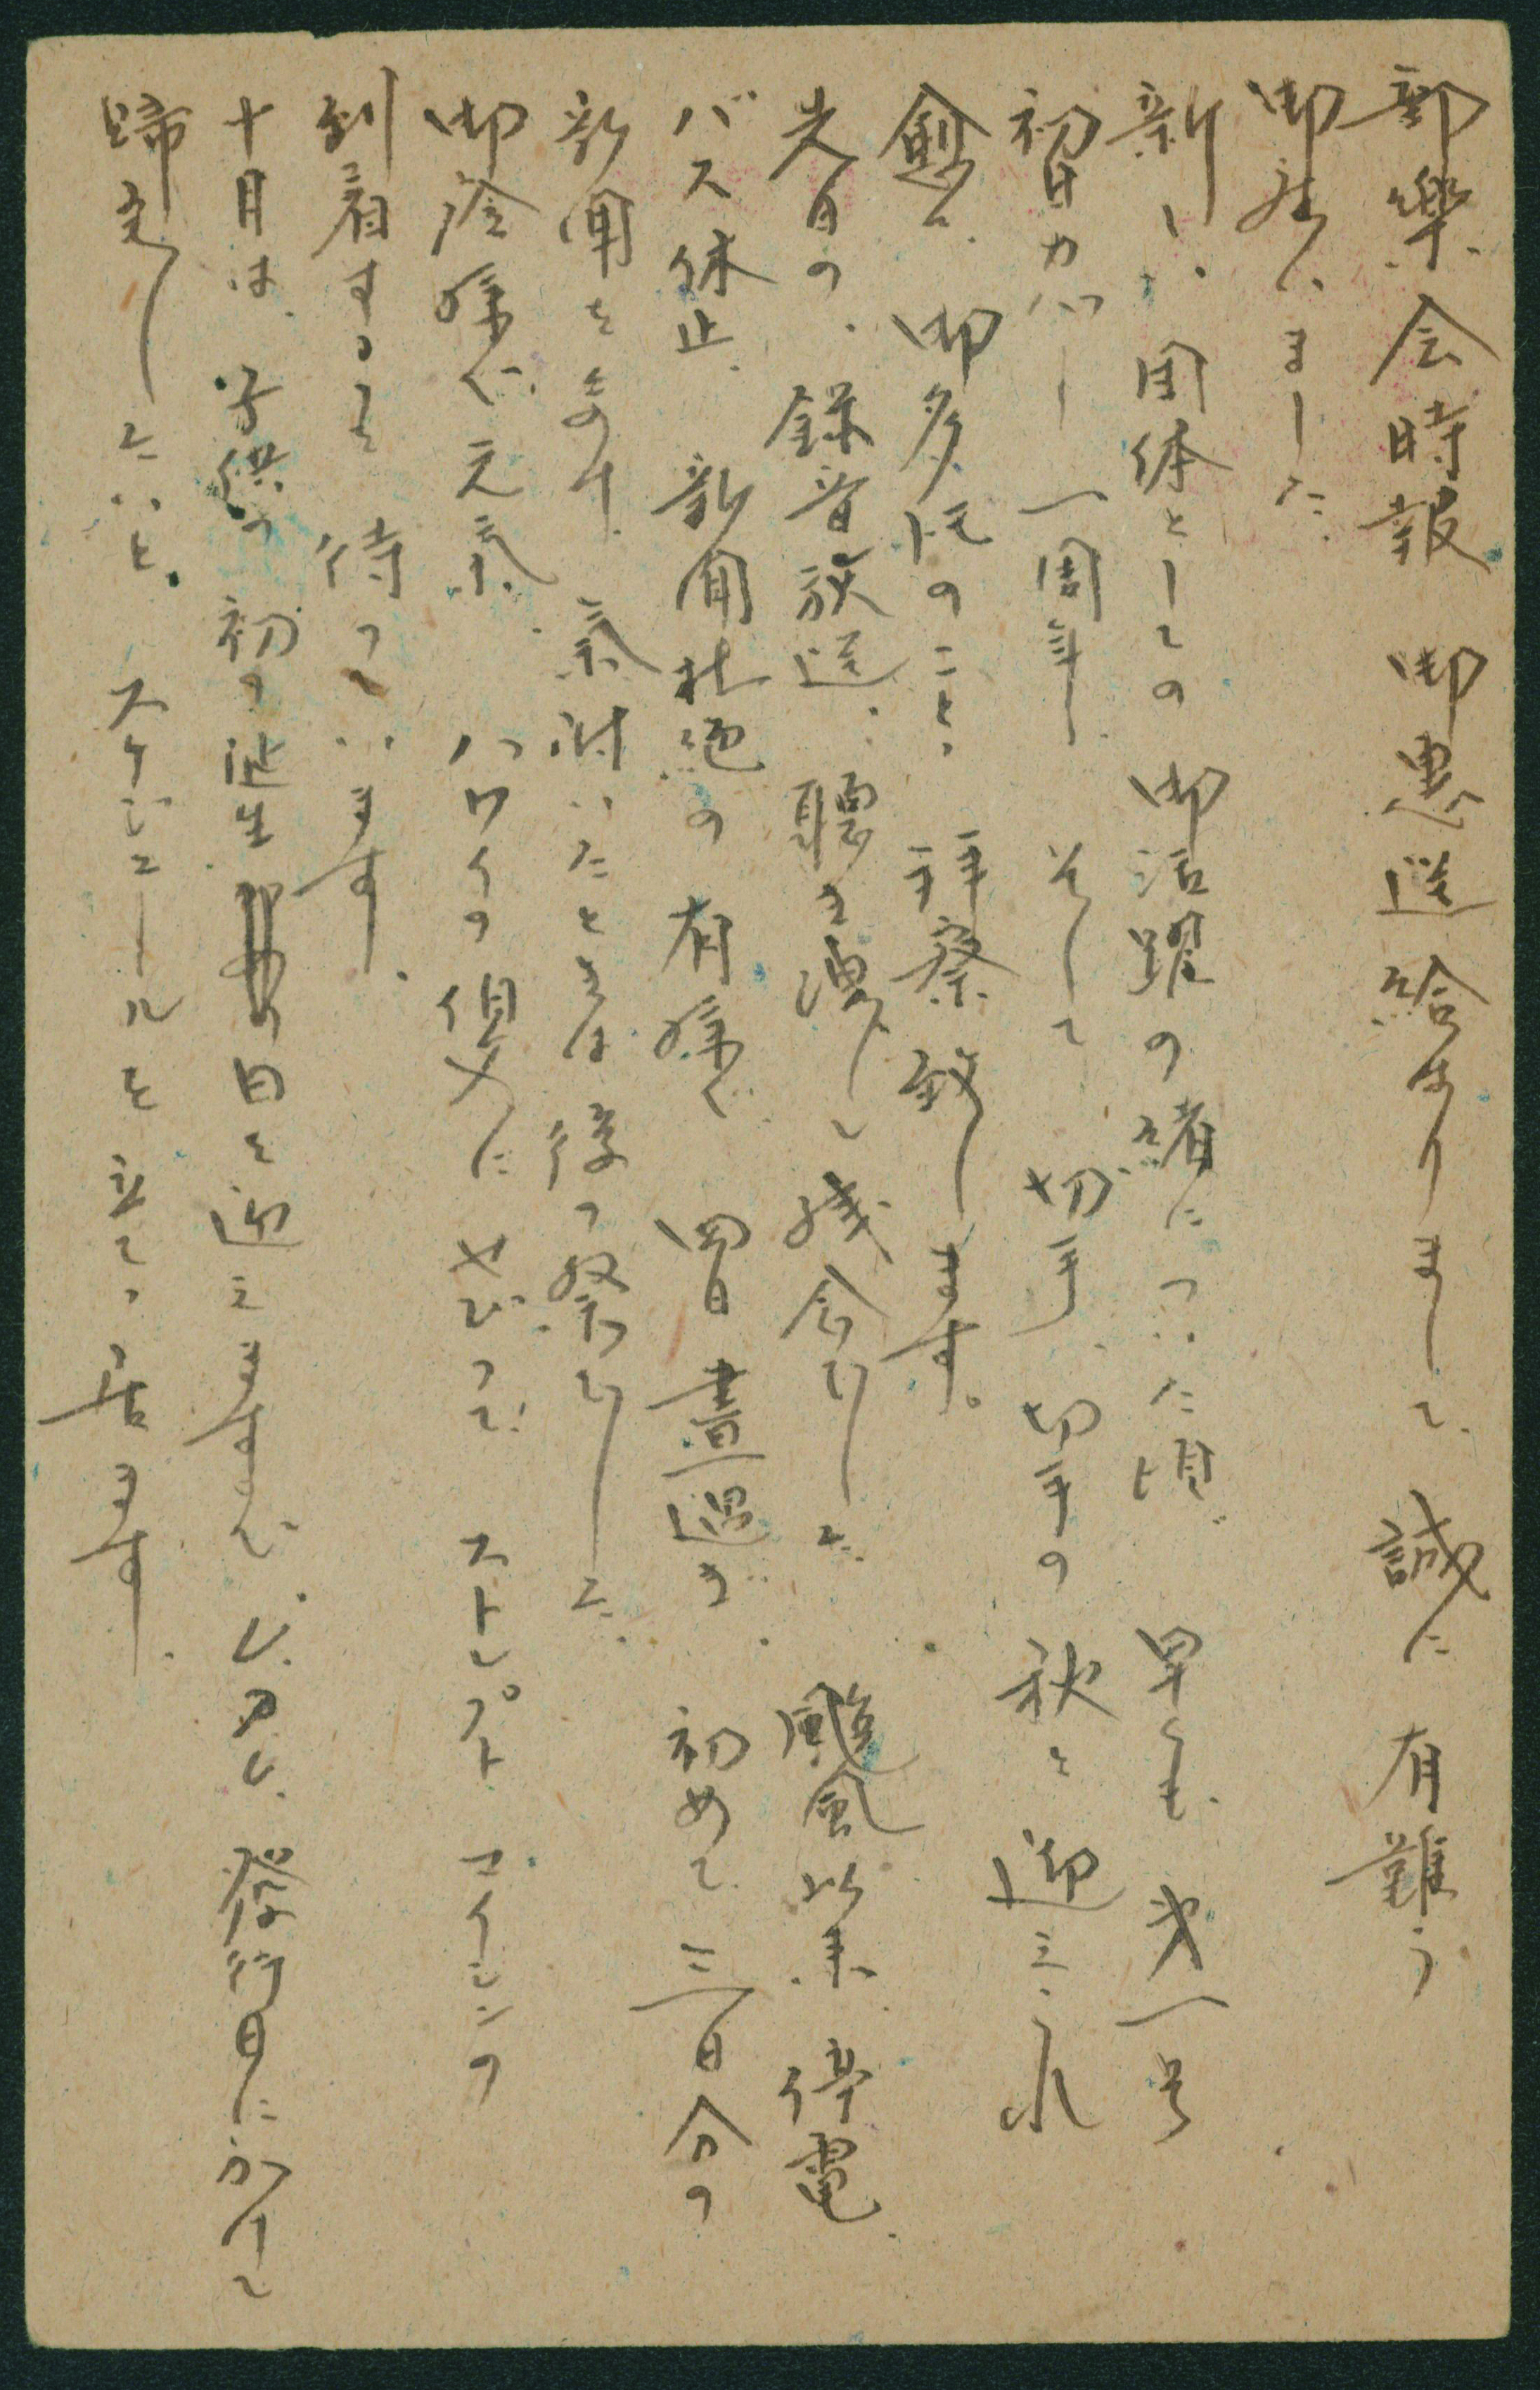 郵樂会時報 御恵送給はりまして、誠に 有難う
御座いました。
新しい団体としての 御活躍の緒についた頃 早くも、第一号
初日カバー 一周年 そして 切手、切手の 秋を 迎えられ
愈々、御多忙のこと、拝察致します。
先日の、録音放送、聴き洩らして残念でした。颱風以来、停電、
バス休止、新聞杜絶の 有様で 四日 晝過ぎ 初めて、三日分の
新聞をよみ、氣附いたときは 後の祭でした。
御蔭様で元気、ハワイの伯父に せびって、ストレプトマイシンの
到着するを 待っています。
十月は、子供の 初の誕生日を迎えますので、び.アル.發行日にかけて
帰宅したいと、スケジュールを立てて居ます。